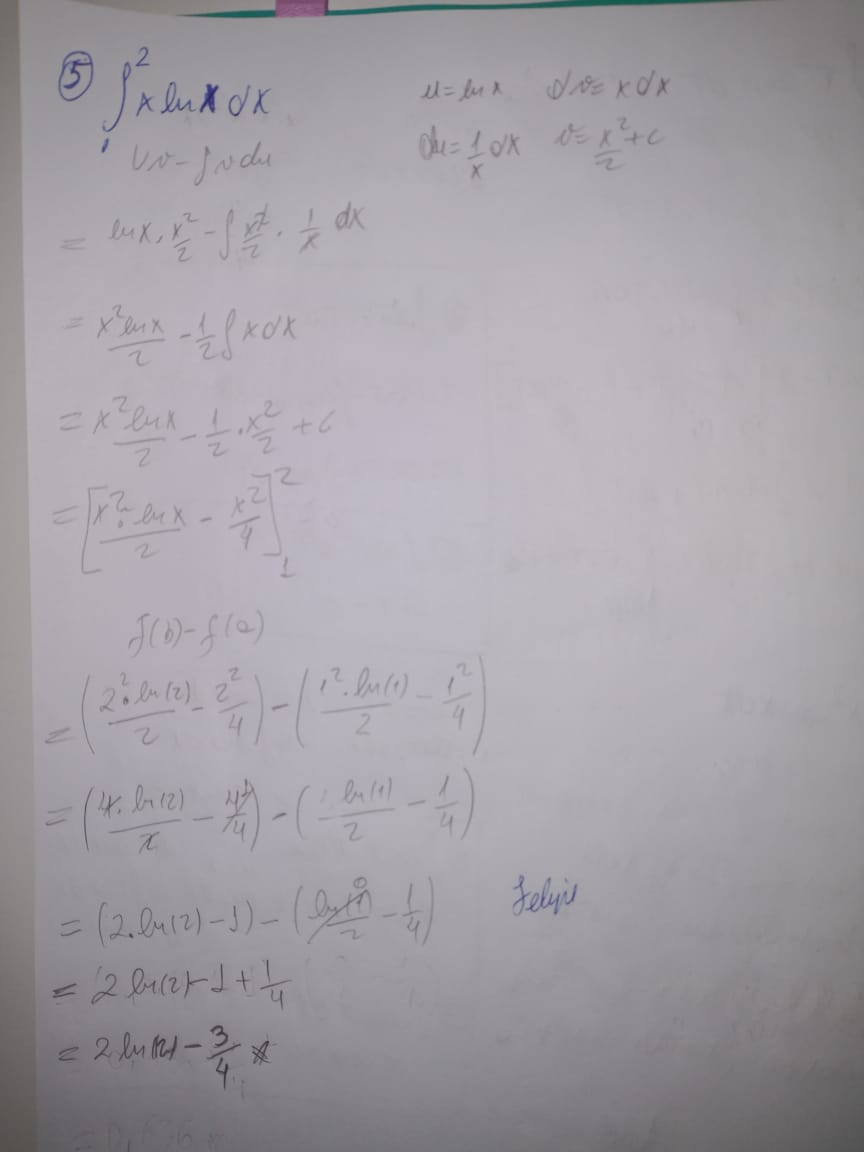 ⑤ ∫₁² x ln x dx
u = ln x dv = x dx
du = 1/x dx v = x²/2 + c
Uv - ∫vdu
= ln x . x²/2 - ∫ x²/2 . 1/x dx
= x² ln x/2 - 1/2 ∫ x dx
= x² ln x/2 - 1/2 . x²/2 + c
= [x² . ln x/2 - x²/4]₁²
f(b) - f(a)
= (2² . ln(2)/2 - 2²/4) - (1² . ln(1)/2 - 1²/4)
= (4 . ln(2)/2 - 4/4) - (ln(1)/2 - 1/4)
= (2 . ln(2) - 1) - (ln(1)/2 - 1/4)
Felipe
= 2 ln(2) - 1 + 1/4
= 2 ln(2) - 3/4